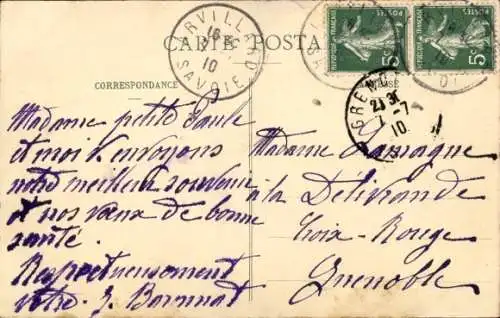 CARTE POSTA
CORRESPONDANCE
ARVILLARD
SAVOIE
10
POSTES
5c
REPUBLIQUE FRANÇAISE
POSTES
5c
REPUBLIQUE FRANÇAISE
GRENO
21 30
7-7
10
Madame petite Paule
et moi envoyons
notre meilleur souvenir
et nos vœux de bonne
santé.
Respectueusement
votre J.
Madame
à la Délivrande
Croix-Rouge
Grenoble